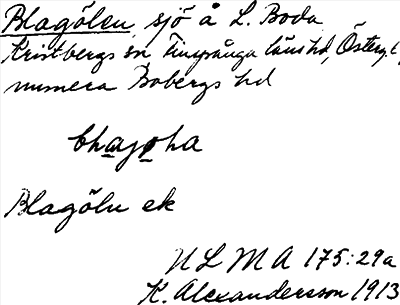 Blagölen, sjö å L. Boda
Kristbergs sn Finspånga läns hd, Österg. l,
numera Bobergs hd
Blagöln ek
ULMA 175:29a
K. Alexandersson 1913